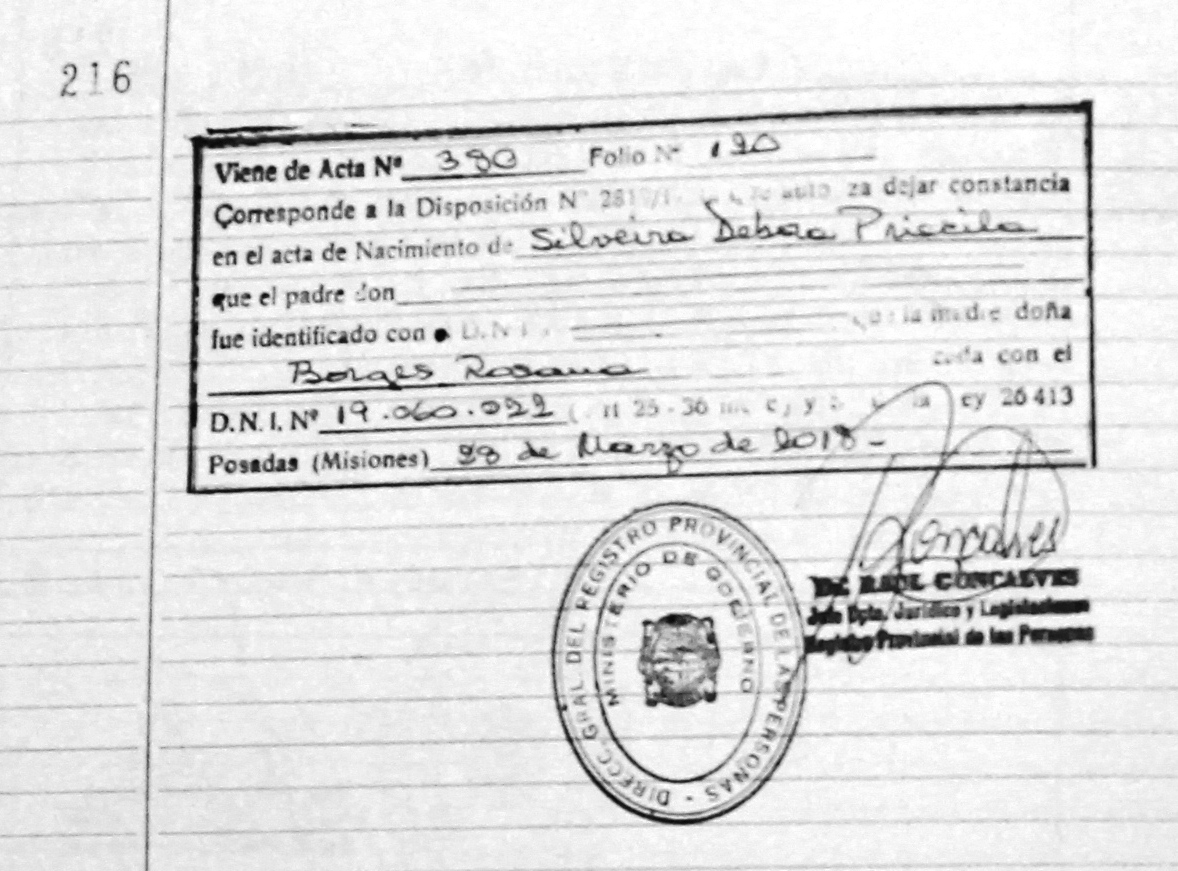 216
Viene de Acta Nº 380 Folio Nº 190
Corresponde a la Disposición Nº dejar constancia
en el acta de Nacimiento de Silveira Debora Priscila
que el padre don
fue identificado con D.N.I. que la madre doña
Borges Rosana con el
D.N.I. Nº 19.060.022 25-36 inc. c) y ley 26413
Posadas (Misiones) 28 de Marzo de 2018-
Goncalves
DIRECC. GRAL. DEL REGISTRO PROVINCIAL DE LAS PERSONAS -
MINISTERIO DE GOBIERNO
Dr. RAUL GONCALVES
Jefe Dpto. Jurídico y Legislaciones
Registro Provincial de las Personas